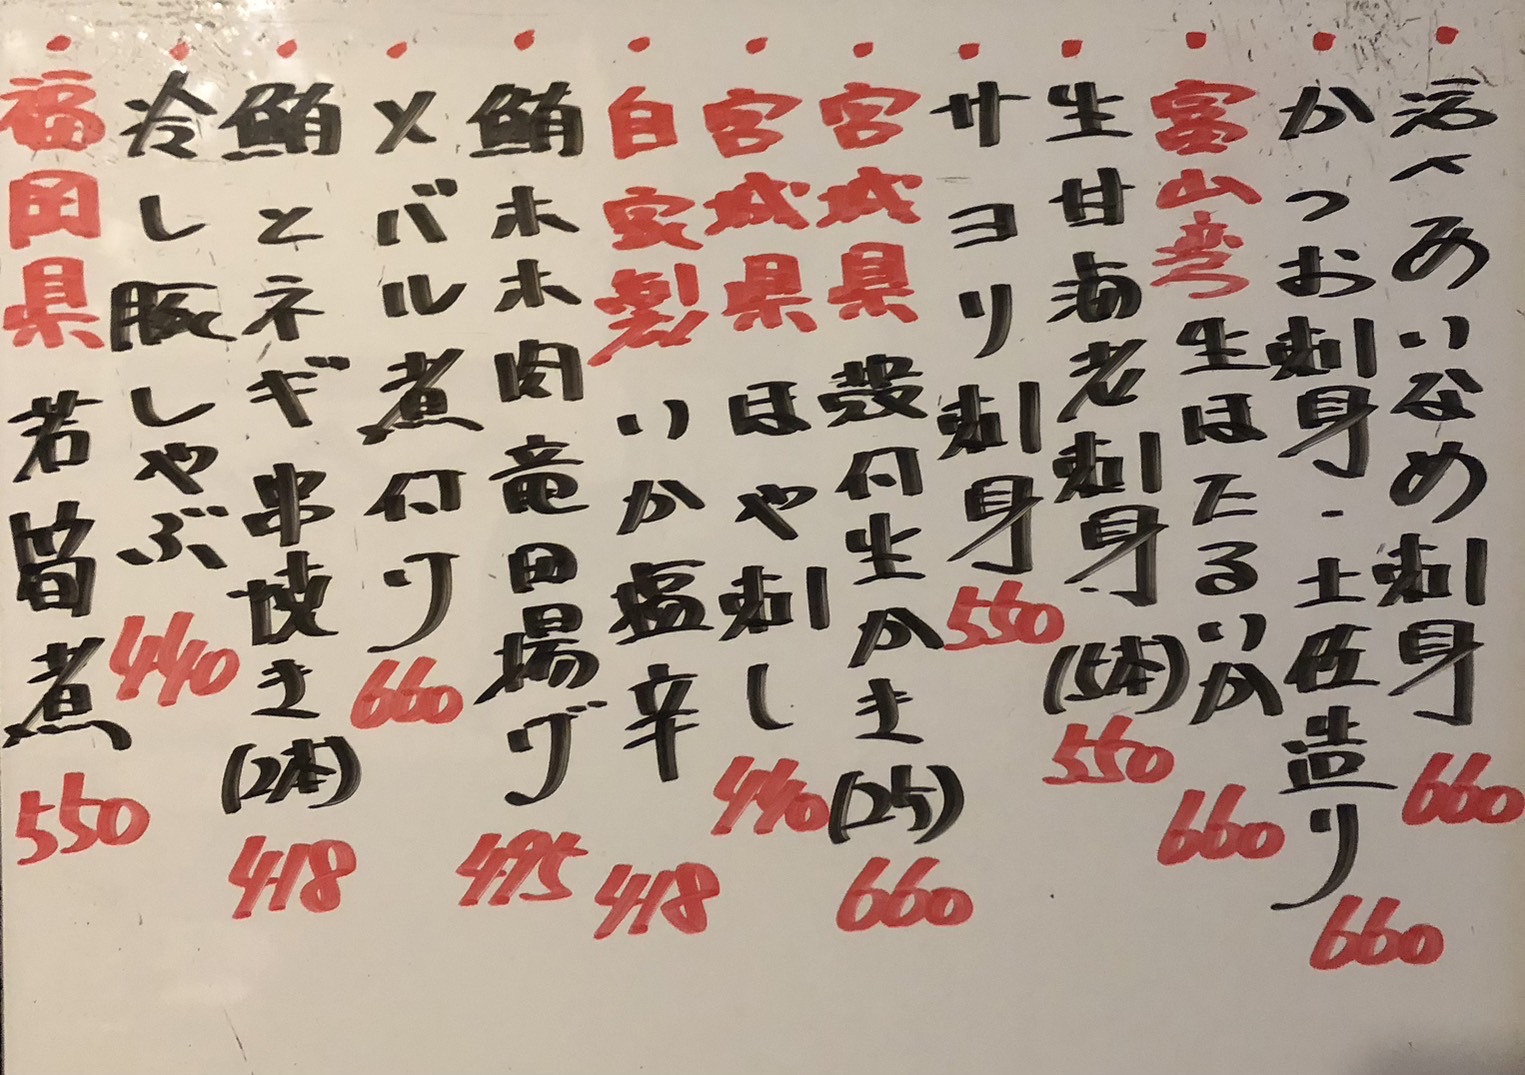 活〆あいなめ刺身 660
かつお刺身・土佐造り 660
富山湾 生ほたるいか 660
生甘海老刺身(5本) 550
サヨリ刺身 550
宮城県 殻付生かき(2ヶ) 660
宮城県 ほや刺し 440
自家製 いか塩辛 418
鮪ホホ肉竜田揚げ 495
メバル煮付け 660
鮪とネギ串焼き(2本) 418
冷し豚しゃぶ 440
福岡県 若筍煮 550